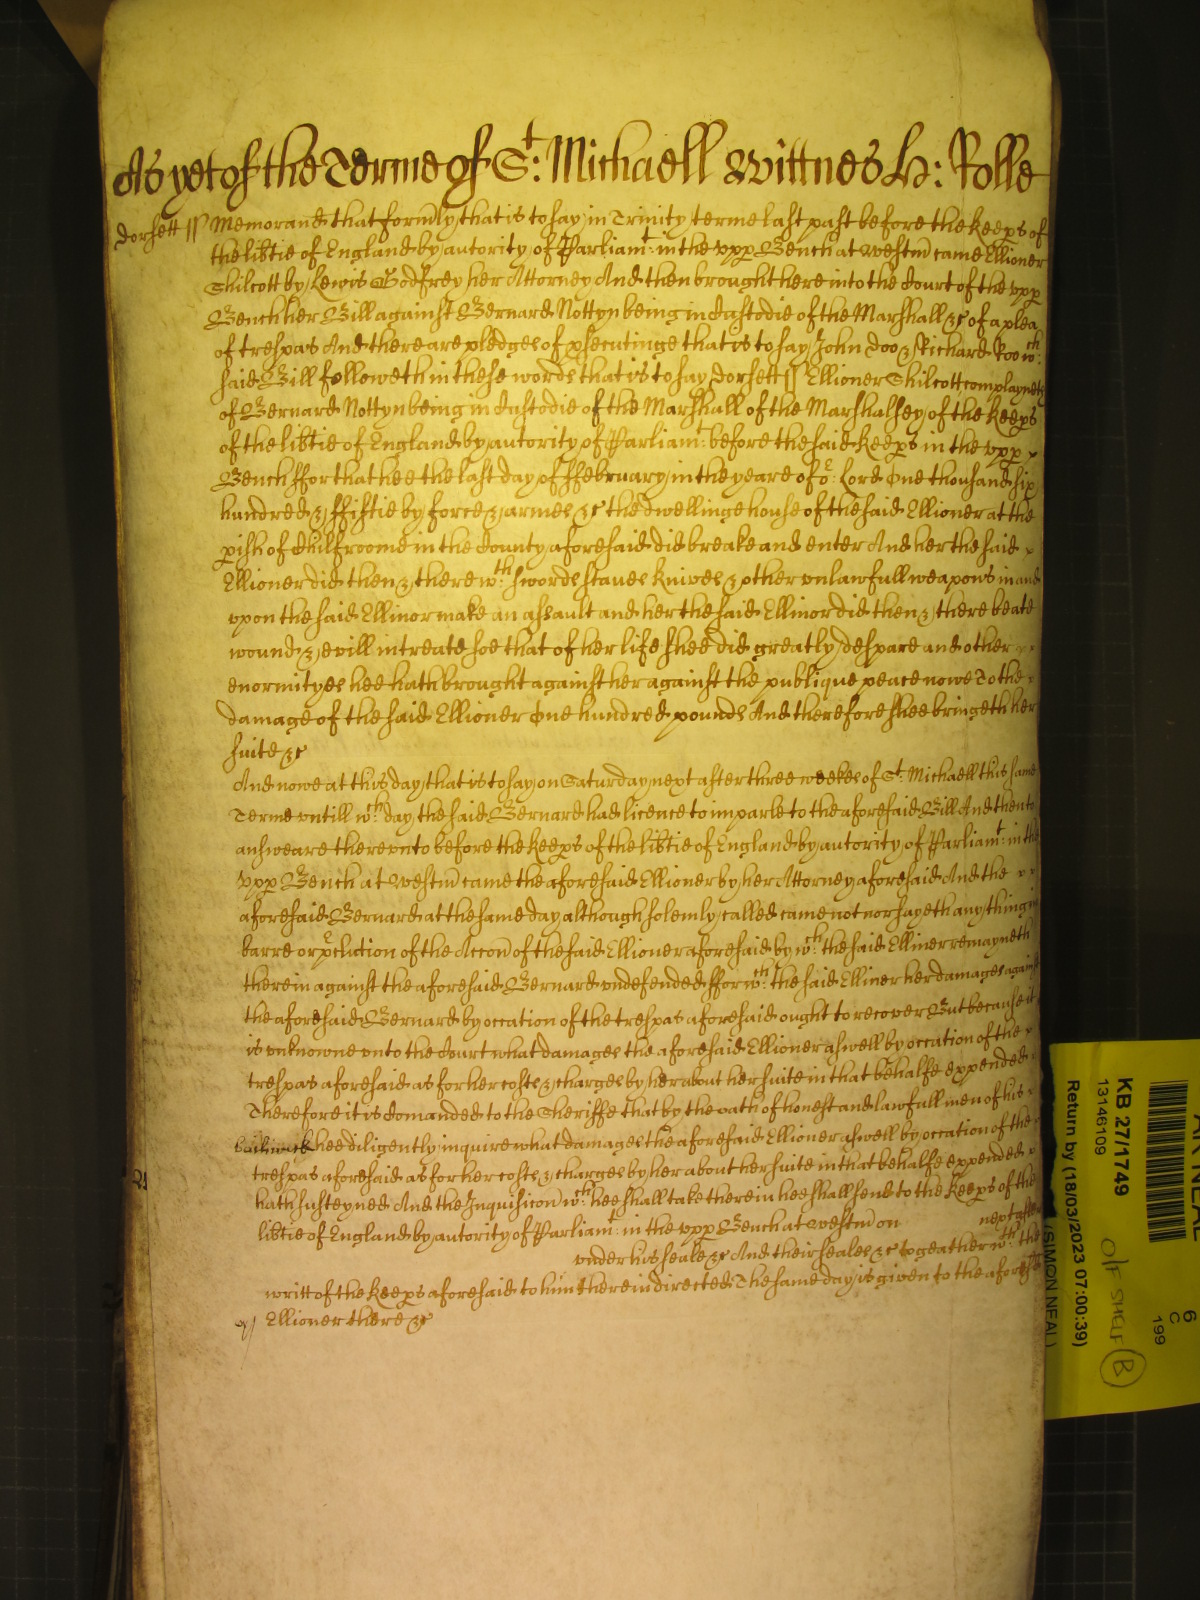 As yet of the Terme of St: Michaell Wittnes H: Rolle
Dorsett ss Memorand that formly that is to say in Trinity terme last past before the Keeps of
the libtie of England by autority of Parliamt: in the vpp Bench at Westm came Ellioner
Shilcott by Lewis Godfrey her Attorney And then brought here into the Court of the vpp
Bench her Bill against Bernard Nottyn being in Custodie of the Marshall &c of a plea
of trespas And there are pledges of psecutinge that is to say John Doo & Richard Roo wch:
said Bill followeth in these words that is to say Dorsett ss Ellioner Shilcott complayneth
of Bernard Nottyn being in Custodie of the Marshall of the Marshalsey of the Keeps
of the libtie of England by autority of Parliamt: before the said Keeps in the vpp
Bench ffor that hee the last day of ffebruary in the yeare of or: Lord One thousand six
hundred & ffiftie by force & armes &c the dwellinge house of the said Ellioner at the
pish of Chilfroome in the County aforesaid did breake and enter And her the said
Ellioner did then & there wth: swords staues knives & other vnlawfull weapons in and
vpon the said Ellinor make an assault and her the said Ellinor did then & there beate
wound & evill intreate soe that of her life shee did greatly despare and other
enormityes hee hath brought against her against the publique peace nowe To the
damage of the said Ellioner One hundred pounds And therefore shee bringeth her
suite &c
And nowe at this day that is to say on Saturday next after three weekes of St: Michaell this same
Terme vntill wch: day the said Bernard had licence to imparle to the aforesaid Bill And then to
answeare therevnto before the Keeps of the libtie of England by autority of Parliamt: in the
vpp Bench at Westm came the aforesaid Ellioner by her Attorney aforesaid And the
aforesaid Bernard at the same day although solemly called came not nor sayeth any thing in
barre or pclution of the Accon of the said Ellioner aforesaid by wch: the said Elliner remayneth
therein against the aforesaid Bernard vndefended ffor wch: the said Elliner her damages against
the aforesaid Bernard by occation of the trespas aforesaid ought to recover But because it
is vnknowne vnto the Court what damages the aforesaid Ellioner aswell by occation of the
trespas aforesaid as for her costs & charges by her about her suite in that behalfe expended
Therefore it is comanded to the Sheriffe that by the oath of honest and lawfull men of his
bailiwick hee diligently inquire what damages the aforesaid Ellioner aswell by occation of the
trespas aforesaid as for her costs & charges by her about her suite in that behalfe expended
hath susteyned And the Inquisicon wch: hee shall take therein hee shall send to the Keeps of the
libtie of England by autority of Parliamt: in the vpp Bench at Westm on next after
vnder his seale &c And their seales &c togeather wth: the
writt of the Keeps aforesaid to him therein directed The same day is given to the aforesaid
Ellioner there &c
KB 27/1749
13146109
Return by (18/03/2023 07:00:39)
(SIMON NEAL)
O/F SHELF B
6
C
199